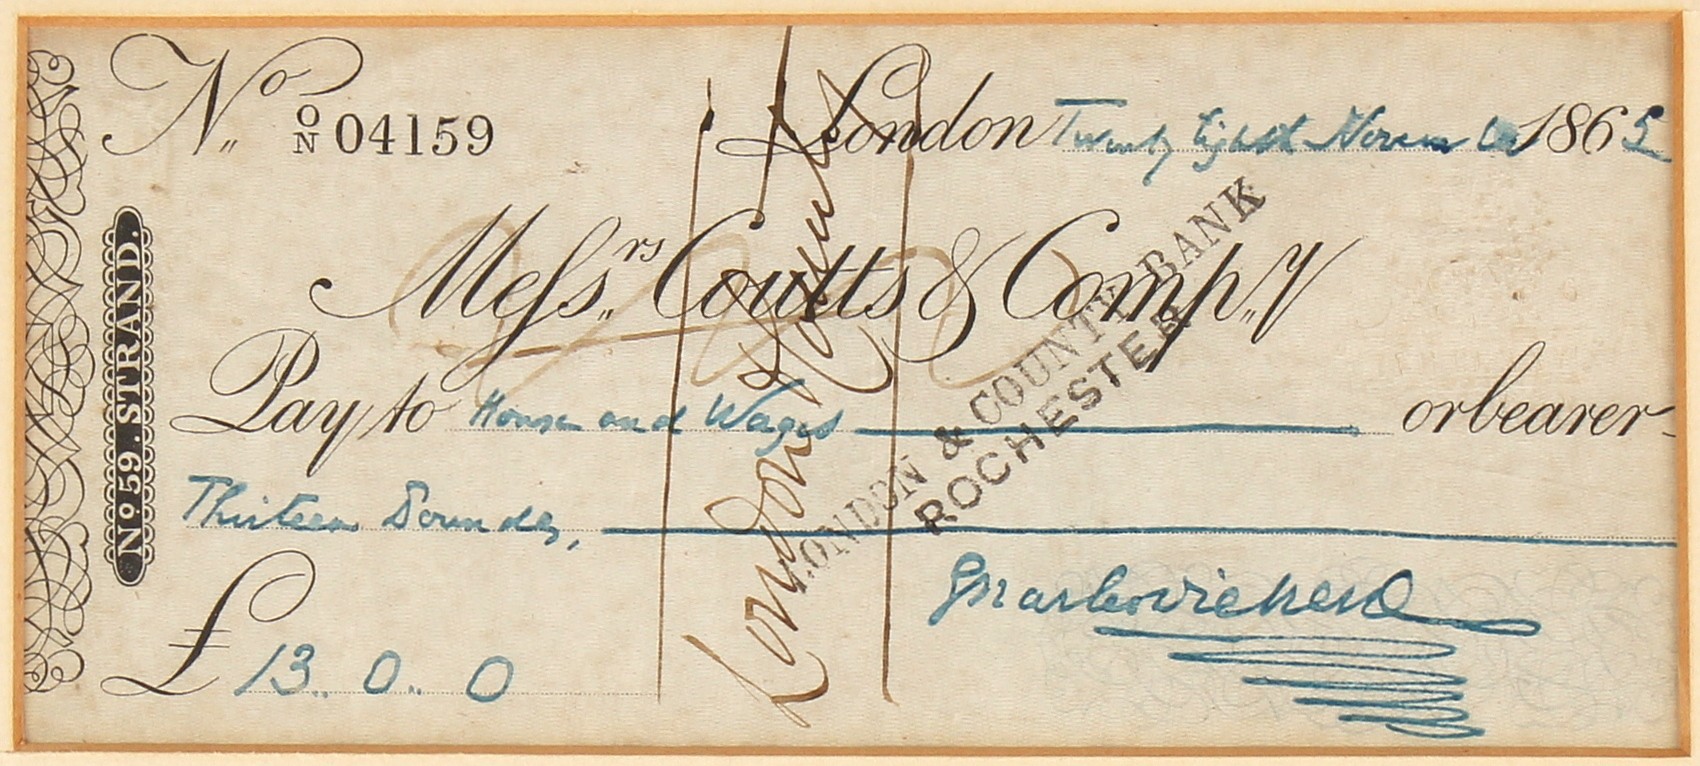 No. O/N 04159
London Twenty Eighth November 1865
Messrs. Coutts & Compy.
Pay to House and Wages or bearer
Thirteen Pounds,
£13.. 0.. 0
Charles Dickens
No 59. STRAND.
London & County
LONDON & COUNTY BANK
ROCHESTER